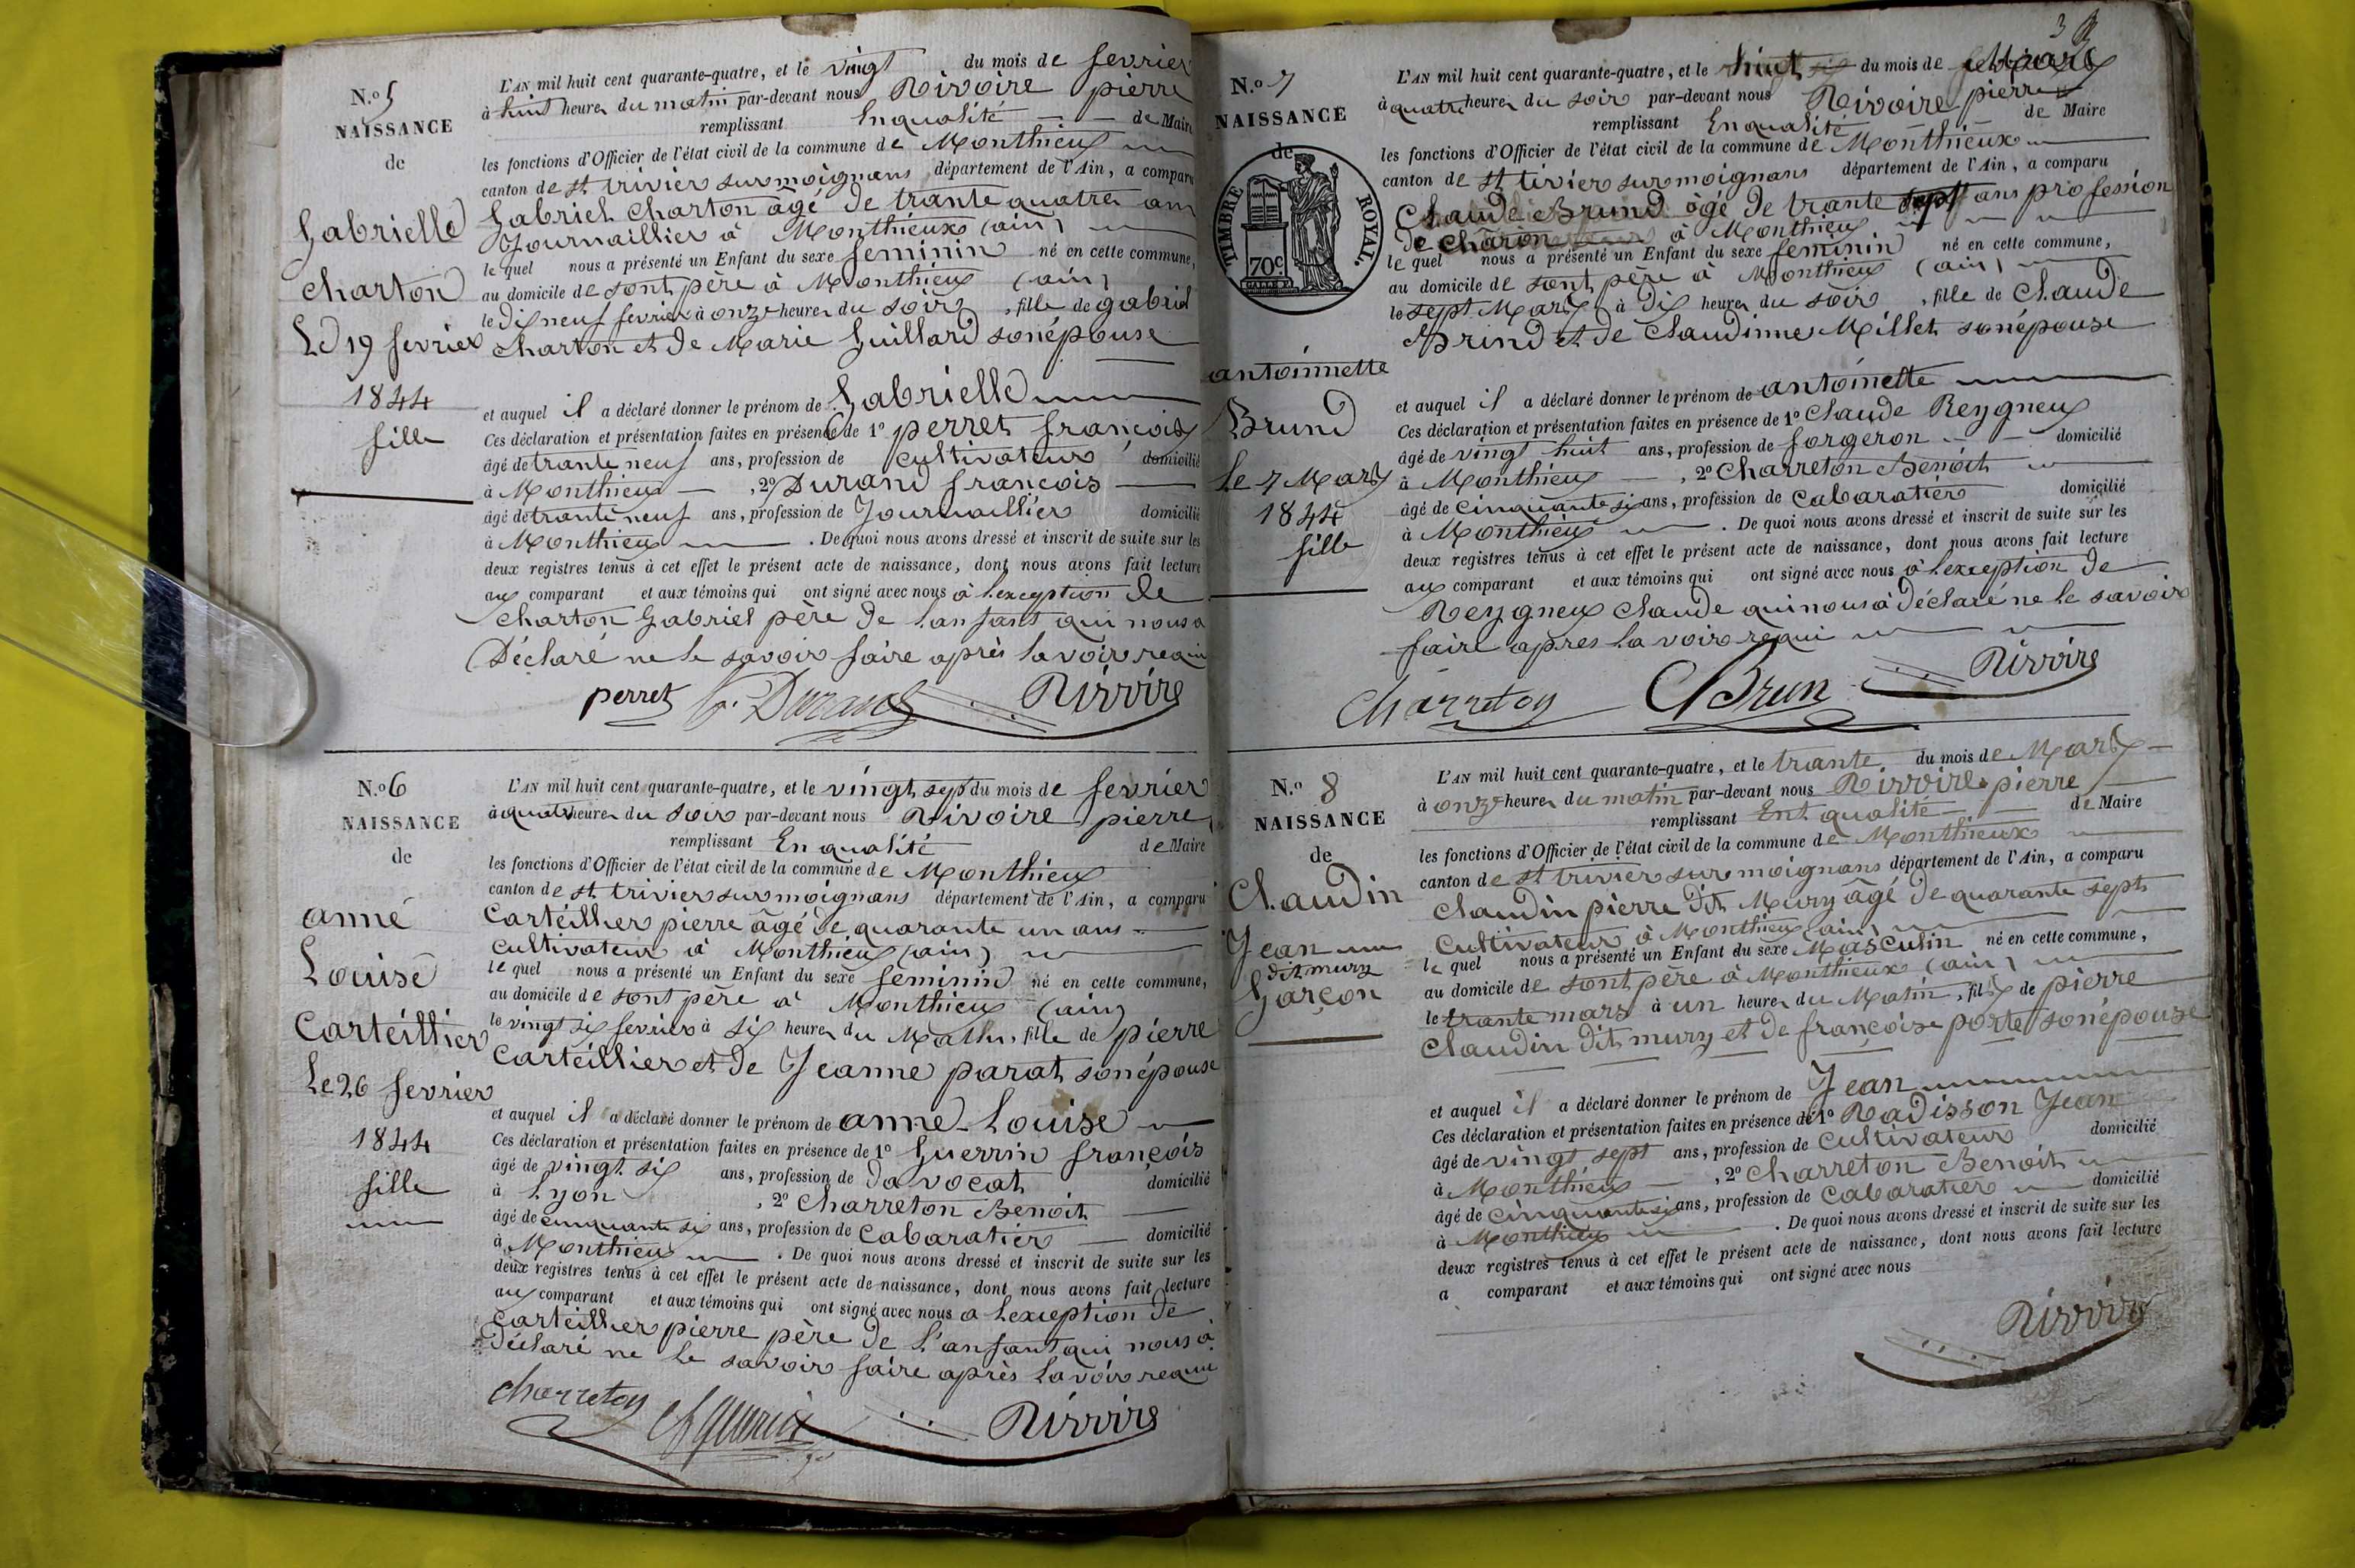 N.o 5
NAISSANCE
de
Gabrielle
Charton
Le 19 fevrier
1844
fille
L'AN mil huit cent quarante-quatre, et le vingt du mois de fevrier
à huit heures du matin par-devant nous Rivoire pierre
remplissant Enqualité de Maire
les fonctions d'Officier de l'état civil de la commune de Monthieux
canton de st trivier surmoignans département de l'Ain, a comparu
Gabriel Charton âgé de trante quatre ans
Journaillier à Monthieux (ain)
le quel nous a présenté un Enfant du sexe feminin né en cette commune,
au domicile de sont père à Monthieux (ain)
le dix neuf fevrier à onze heures du soir, fille de gabriel
charton et de Marie Guillard sonépouse
et auquel il a déclaré donner le prénom de Gabrielle
Ces déclaration et présentation faites en présence de 1o perret françois
âgé de trante neuf ans, profession de cultivateur domicilié
à Monthieux, 2o Durand françois
âgé de trante neuf ans, profession de Journaillier domicilié
à Monthieux. De quoi nous avons dressé et inscrit de suite sur les
deux registres tenus à cet effet le présent acte de naissance, dont nous avons fait lecture
aux comparant et aux témoins qui ont signé avec nous à lexception de
charton Gabriel père de lanfant qui nous a
Déclaré ne le savoir faire après lavoir requi
perret Durand Rivoire
N.o 6
NAISSANCE
de
anne
Louise
Carteillier
Le 26 fevrier
1844
fille
L'AN mil huit cent quarante-quatre, et le vingt sept du mois de fevrier
à quatre heures du soir par-devant nous Rivoire pierre
remplissant En qualité de Maire
les fonctions d'Officier de l'état civil de la commune de Monthieux
canton de st trivier surmoignans département de l'Ain, a comparu
Carteillier pierre âgé de quarante un ans
cultivateur à Monthieux (ain)
le quel nous a présenté un Enfant du sexe feminin né en cette commune,
au domicile de sont père à Monthieux (ain)
le vingt six fevrier à six heures du Matin, fille de pierre
Carteillier et de Jeanne parat sonépouse
et auquel il a déclaré donner le prénom de anne Louise
Ces déclaration et présentation faites en présence de 1o Guerrin françois
âgé de vingt six ans, profession de davocat domicilié
à Lyon, 2o Charreton Benoit
âgé de cinquante six ans, profession de Cabaratier domicilié
à Monthieux. De quoi nous avons dressé et inscrit de suite sur les
deux registres tenus à cet effet le présent acte de naissance, dont nous avons fait lecture
aux comparant et aux témoins qui ont signé avec nous a lexception de
Carteillier pierre père de l'anfant qui nous à
déclaré ne le savoir faire après lavoir requi
charreton Rivoire
3
N.o 7
NAISSANCE
de
TIMBRE ROYAL.
70c
antoinnette
Brund
Le 7 Mars
1844
fille
L'AN mil huit cent quarante-quatre, et le huit du mois de Mars
à quatre heures du soir par-devant nous Rivoire pierre
remplissant Enqualité de Maire
les fonctions d'Officier de l'état civil de la commune de Monthieux
canton de st tivier surmoignans département de l'Ain, a comparu
Claude Brund âgé de trante sept ans profession
de charon à Monthieux
le quel nous a présenté un Enfant du sexe feminin né en cette commune,
au domicile de sont père à Monthieux (ain)
le sept Mars à dix heures du soir, fille de Claude
Brund et de Claudinne Millet sonépouse
et auquel il a déclaré donner le prénom de antoinette
Ces déclaration et présentation faites en présence de 1o Claude Reygneux
âgé de vingt huit ans, profession de forgeron domicilié
à Monthieux, 2o Charreton Benoit
âgé de cinquante six ans, profession de Cabaratier domicilié
à Monthieux. De quoi nous avons dressé et inscrit de suite sur les
deux registres tenus à cet effet le présent acte de naissance, dont nous avons fait lecture
aux comparant et aux témoins qui ont signé avec nous à lexception de
Reygneux claude qui nous à déclaré ne le savoir
faire apres lavoir requi
Charreton CBrun Rivoire
N.o 8
NAISSANCE
de
Claudin
Jean
dit mury
Garçon
L'AN mil huit cent quarante-quatre, et le trante du mois de Mars
à onze heures du matin par-devant nous Rivoire pierre
remplissant Ent qualité de Maire
les fonctions d'Officier de l'état civil de la commune de Monthieux
canton de st trivier surmoignans département de l'Ain, a comparu
Claudin pierre dit Mury âgé de quarante sept
Cultivateur à Monthieux (ain)
le quel nous a présenté un Enfant du sexe Masculin né en cette commune,
au domicile de sont père à Monthieux (ain)
le trante mars à un heures du Matin, fils de pierre
Claudin dit mury et de françoise porte sonépouse
et auquel il a déclaré donner le prénom de Jean
Ces déclaration et présentation faites en présence de 1o Radisson Jean
âgé de vingt sept ans, profession de cultivateur domicilié
à Monthieux, 2o Charreton Benoit
âgé de cinquante six ans, profession de Cabaratier domicilié
à Monthieux. De quoi nous avons dressé et inscrit de suite sur les
deux registres tenus à cet effet le présent acte de naissance, dont nous avons fait lecture
a comparant et aux témoins qui ont signé avec nous
Rivoire